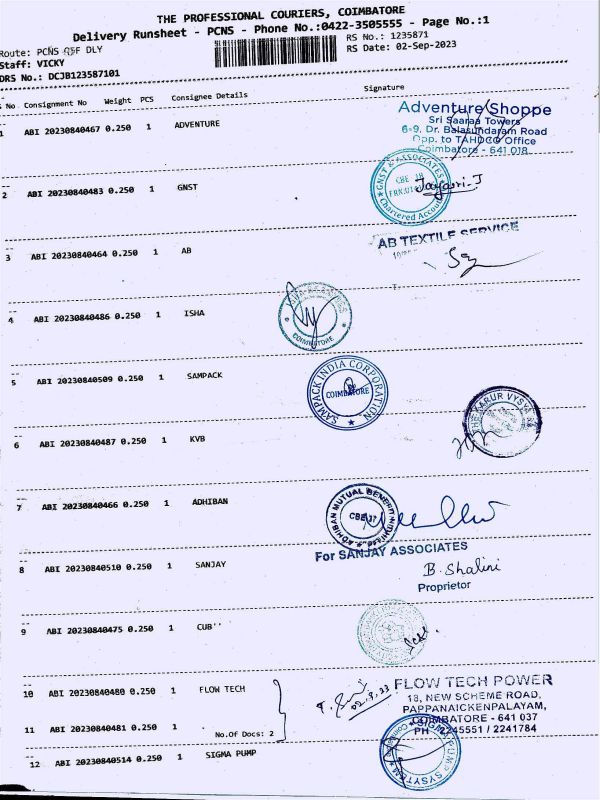 THE PROFESSIONAL COURIERS, COIMBATORE
Delivery Runsheet - PCNS - Phone No.:0422-3505555 - Page No.:1
Route: PCNS DLY
RS No.: 1235871
Staff: VICKY
RS Date: 02-Sep-2023
DRS No.: DCJB123587101
S No Consignment No Weight PCS Consignee Details Signature
1 ABI 20230840467 0.250 1 ADVENTURE
Adventure Shoppe
Sri Saaraa Towers
6-9, Dr. Balasundaram Road
Opp. to TAHDCO Office
Coimbatore - 641 018
2 ABI 20230840483 0.250 1 GNST
GNST & ASSOCIATES
CBE 18
Chartered Accou
3 ABI 20230840464 0.250 1 AB
AB TEXTILE SERVICE
4 ABI 20230840486 0.250 1 ISHA
COIMBATORE
5 ABI 20230840509 0.250 1 SAMPACK
SAMPACK INDIA CORPORATION
COIMBATORE
6 ABI 20230840487 0.250 1 KVB
THE KARUR VYSYA
7 ABI 20230840466 0.250 1 ADHIBAN
ADHIBAN MUTUAL BENEFIT
CBE 37
8 ABI 20230840510 0.250 1 SANJAY
For SANJAY ASSOCIATES
B. Shalini
Proprietor
9 ABI 20230840475 0.250 1 CUB''
10 ABI 20230840480 0.250 1 FLOW TECH
FLOW TECH POWER
13, NEW SCHEME ROAD,
PAPPANAICKENPALAYAM,
COIMBATORE - 641 037
11 ABI 20230840481 0.250 1
No.Of Docs: 2
PH 2245551 / 2241784
12 ABI 20230840514 0.250 1 SIGMA PUMP
SIGMA PUMP